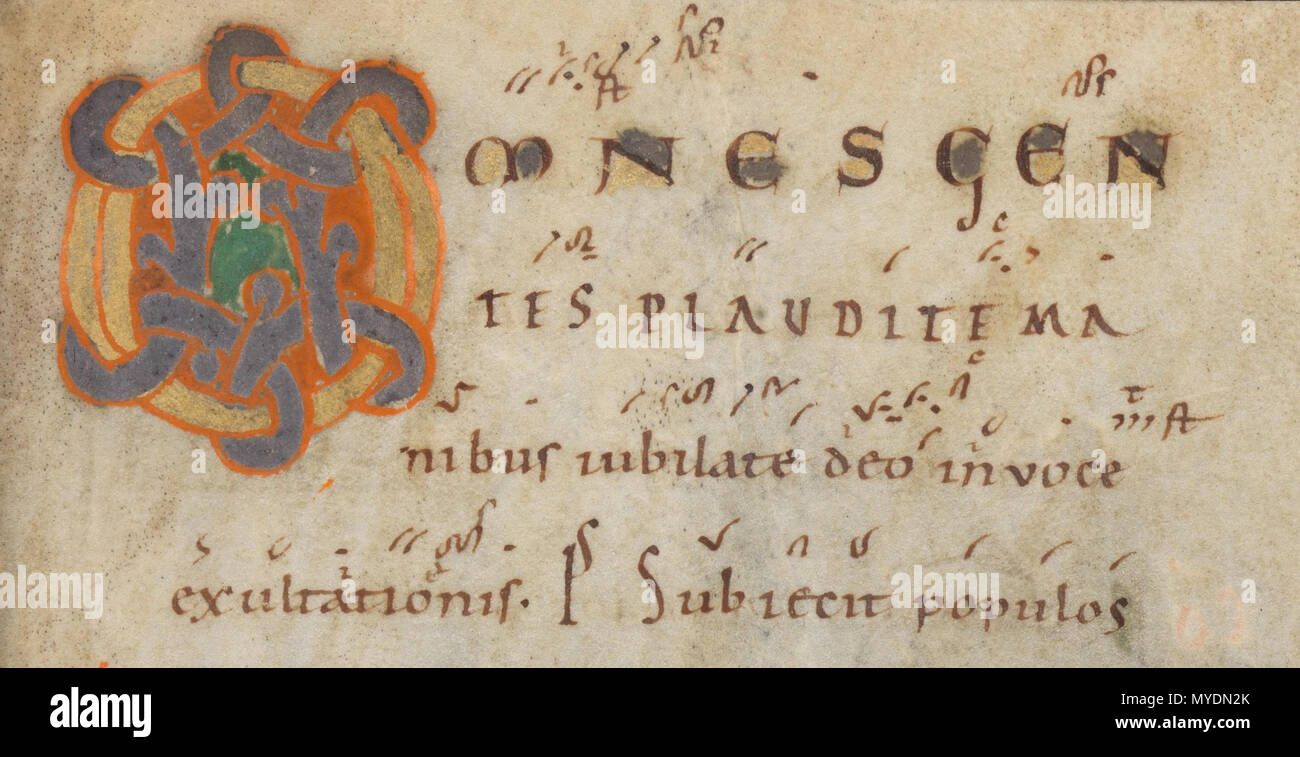 OMNES GEN
TES PLAUDITE MA
nibus iubilate deo in voce
exultationis. Ps Subiecit populos
alamy
Image ID: MYDN2K
www.alamy.com